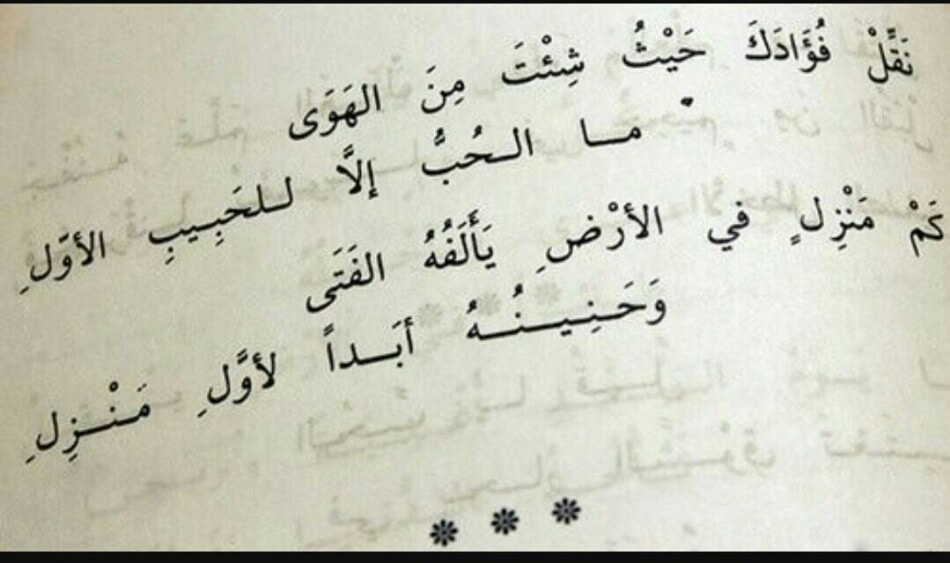 نَقِّلْ فُؤَادَكَ حَيْثُ شِئْتَ مِنَ الهَوَى
ما الحُبُّ إلاَّ للحَبِيبِ الأوّلِ
كَمْ مَنْزِلٍ في الأرْضِ يَأْلَفُهُ الفَتَى
وَحَنِينُهُ أبَداً لأوَّلِ مَنْزِلِ